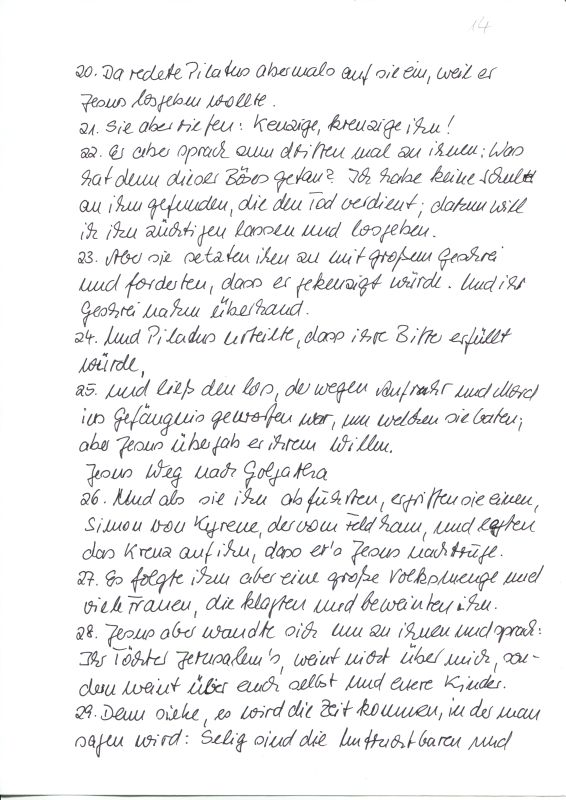 14
20. Da redete Pilatus abermals auf sie ein, weil er
Jesus losgeben wollte.
21. Sie aber riefen: Keuzige, kreuzige ihn!
22. Er aber sprach zum dritten mal zu ihnen: Was
hat denn dieser Böses getan? Ich habe keine Schuld
an ihm gefunden, die den Tod verdient; darum will
ich ihn züchtigen lassen und losgeben.
23. Aber sie setzten ihm zu mit großem Geschrei
und forderten, dass er gekreuzigt würde. Und ihr
Geschrei nahm überhand.
24. Und Pilatus urteilte, dass ihre Bitte erfüllt
würde,
25. und ließ den los, der wegen Aufruhr und Mord
ins Gefängnis geworfen war, um welchen sie baten;
aber Jesus übergab er ihrem Willen.
Jesus Weg nach Golgatha
26. Und als sie ihn abführten, ergriffen sie einen,
Simon von Kyrene, der vom Feld kam, und legten
das Kreuz auf ihn, dass er's Jesus nachtrüge.
27. Es folgte ihm aber eine große Volksmenge und
viele Frauen, die klagten und beweinten ihn.
28. Jesus aber wandte sich um zu ihnen und sprach:
Ihr Töchter Jerusalem's, weint nicht über mich, son-
dern weint über euch selbst und euere Kinder.
29. Denn siehe, es wird die Zeit kommen, in der man
sagen wird: Selig sind die Unfruchtbaren und